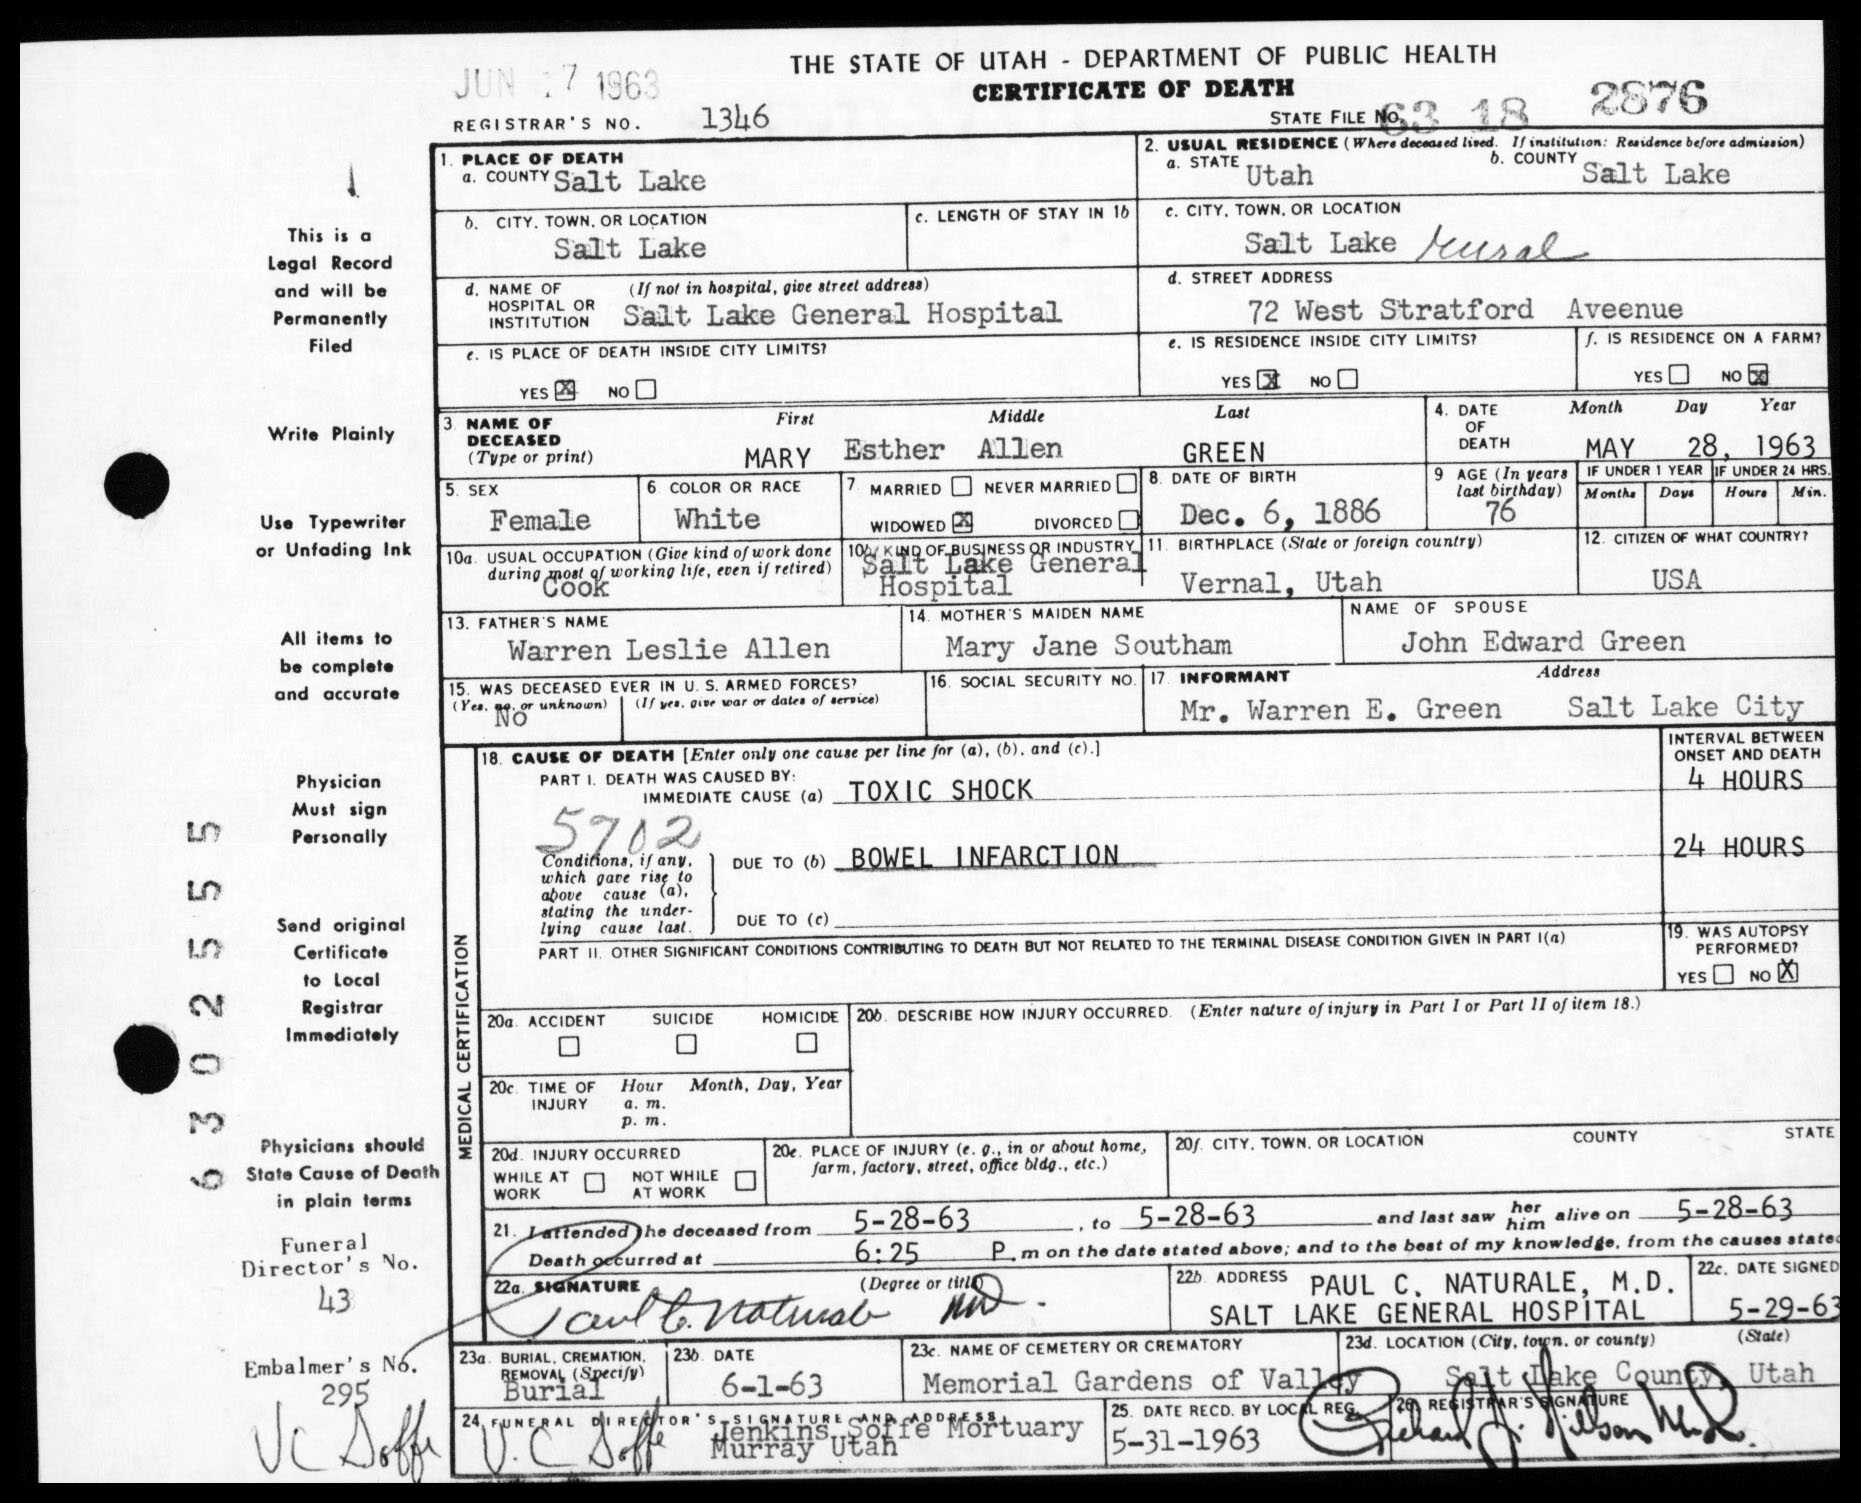 THE STATE OF UTAH - DEPARTMENT OF PUBLIC HEALTH
JUN 17 1963
CERTIFICATE OF DEATH
REGISTRAR'S NO. 1346
STATE FILE NO. 63 18 2876
This is a
Legal Record
and will be
Permanently
Filed
Write Plainly
Use Typewriter
or Unfading Ink
All items to
be complete
and accurate
Physician
Must sign
Personally
Send original
Certificate
to Local
Registrar
Immediately
Physicians should
State Cause of Death
in plain terms
Funeral
Director's No.
43
Embalmer's No.
295
VC Soffe
630255 5
1. PLACE OF DEATH
a. COUNTY Salt Lake
2. USUAL RESIDENCE (Where deceased lived. If institution: Residence before admission)
a. STATE Utah b. COUNTY Salt Lake
b. CITY, TOWN, OR LOCATION
Salt Lake
c. LENGTH OF STAY IN 1b
c. CITY, TOWN, OR LOCATION
Salt Lake rural
d. NAME OF HOSPITAL OR INSTITUTION (If not in hospital, give street address)
Salt Lake General Hospital
d. STREET ADDRESS
72 West Stratford Aveenue
e. IS PLACE OF DEATH INSIDE CITY LIMITS?
YES X NO
e. IS RESIDENCE INSIDE CITY LIMITS?
YES X NO
f. IS RESIDENCE ON A FARM?
YES NO X
3. NAME OF DECEASED (Type or print)
First Middle Last
MARY Esther Allen GREEN
4. DATE OF DEATH
Month Day Year
MAY 28, 1963
5. SEX
Female
6. COLOR OR RACE
White
7. MARRIED NEVER MARRIED
WIDOWED X DIVORCED
8. DATE OF BIRTH
Dec. 6, 1886
9 AGE (In years last birthday)
76
IF UNDER 1 YEAR
Months Days
IF UNDER 24 HRS.
Hours Min.
10a. USUAL OCCUPATION (Give kind of work done during most of working life, even if retired)
Cook
10b. KIND OF BUSINESS OR INDUSTRY
Salt Lake General
Hospital
11. BIRTHPLACE (State or foreign country)
Vernal, Utah
12. CITIZEN OF WHAT COUNTRY?
USA
13. FATHER'S NAME
Warren Leslie Allen
14. MOTHER'S MAIDEN NAME
Mary Jane Southam
NAME OF SPOUSE
John Edward Green
15. WAS DECEASED EVER IN U. S. ARMED FORCES?
(Yes, no, or unknown) (If yes, give war or dates of service)
No
16. SOCIAL SECURITY NO.
17. INFORMANT Address
Mr. Warren E. Green Salt Lake City
MEDICAL CERTIFICATION
18. CAUSE OF DEATH [Enter only one cause per line for (a), (b), and (c).]
INTERVAL BETWEEN ONSET AND DEATH
PART I. DEATH WAS CAUSED BY:
IMMEDIATE CAUSE (a) TOXIC SHOCK 4 HOURS
5702
Conditions, if any, which gave rise to above cause (a), stating the underlying cause last.
DUE TO (b) BOWEL INFARCTION 24 HOURS
DUE TO (c)
PART II. OTHER SIGNIFICANT CONDITIONS CONTRIBUTING TO DEATH BUT NOT RELATED TO THE TERMINAL DISEASE CONDITION GIVEN IN PART I(a)
19. WAS AUTOPSY PERFORMED?
YES NO X
20a. ACCIDENT SUICIDE HOMICIDE
20b. DESCRIBE HOW INJURY OCCURRED. (Enter nature of injury in Part I or Part II of item 18.)
20c. TIME OF INJURY Hour Month, Day, Year
a. m.
p. m.
20d. INJURY OCCURRED
WHILE AT WORK NOT WHILE AT WORK
20e. PLACE OF INJURY (e. g., in or about home, farm, factory, street, office bldg., etc.)
20f. CITY, TOWN, OR LOCATION COUNTY STATE
21. I attended the deceased from 5-28-63, to 5-28-63 and last saw her him alive on 5-28-63
Death occurred at 6:25 P. m on the date stated above; and to the best of my knowledge, from the causes state
22a. SIGNATURE (Degree or title)
Paul C. Naturale MD.
22b. ADDRESS PAUL C. NATURALE, M.D.
SALT LAKE GENERAL HOSPITAL
22c. DATE SIGNED
5-29-63
23a. BURIAL, CREMATION, REMOVAL (Specify)
Burial
23b. DATE
6-1-63
23c. NAME OF CEMETERY OR CREMATORY
Memorial Gardens of Valley
23d. LOCATION (City, town, or county) (State)
Salt Lake County, Utah
24. FUNERAL DIRECTOR'S SIGNATURE AND ADDRESS
V. C Soffe Jenkins Soffe Mortuary
Murray Utah
25. DATE RECD. BY LOCAL REG.
5-31-1963
26. REGISTRAR'S SIGNATURE